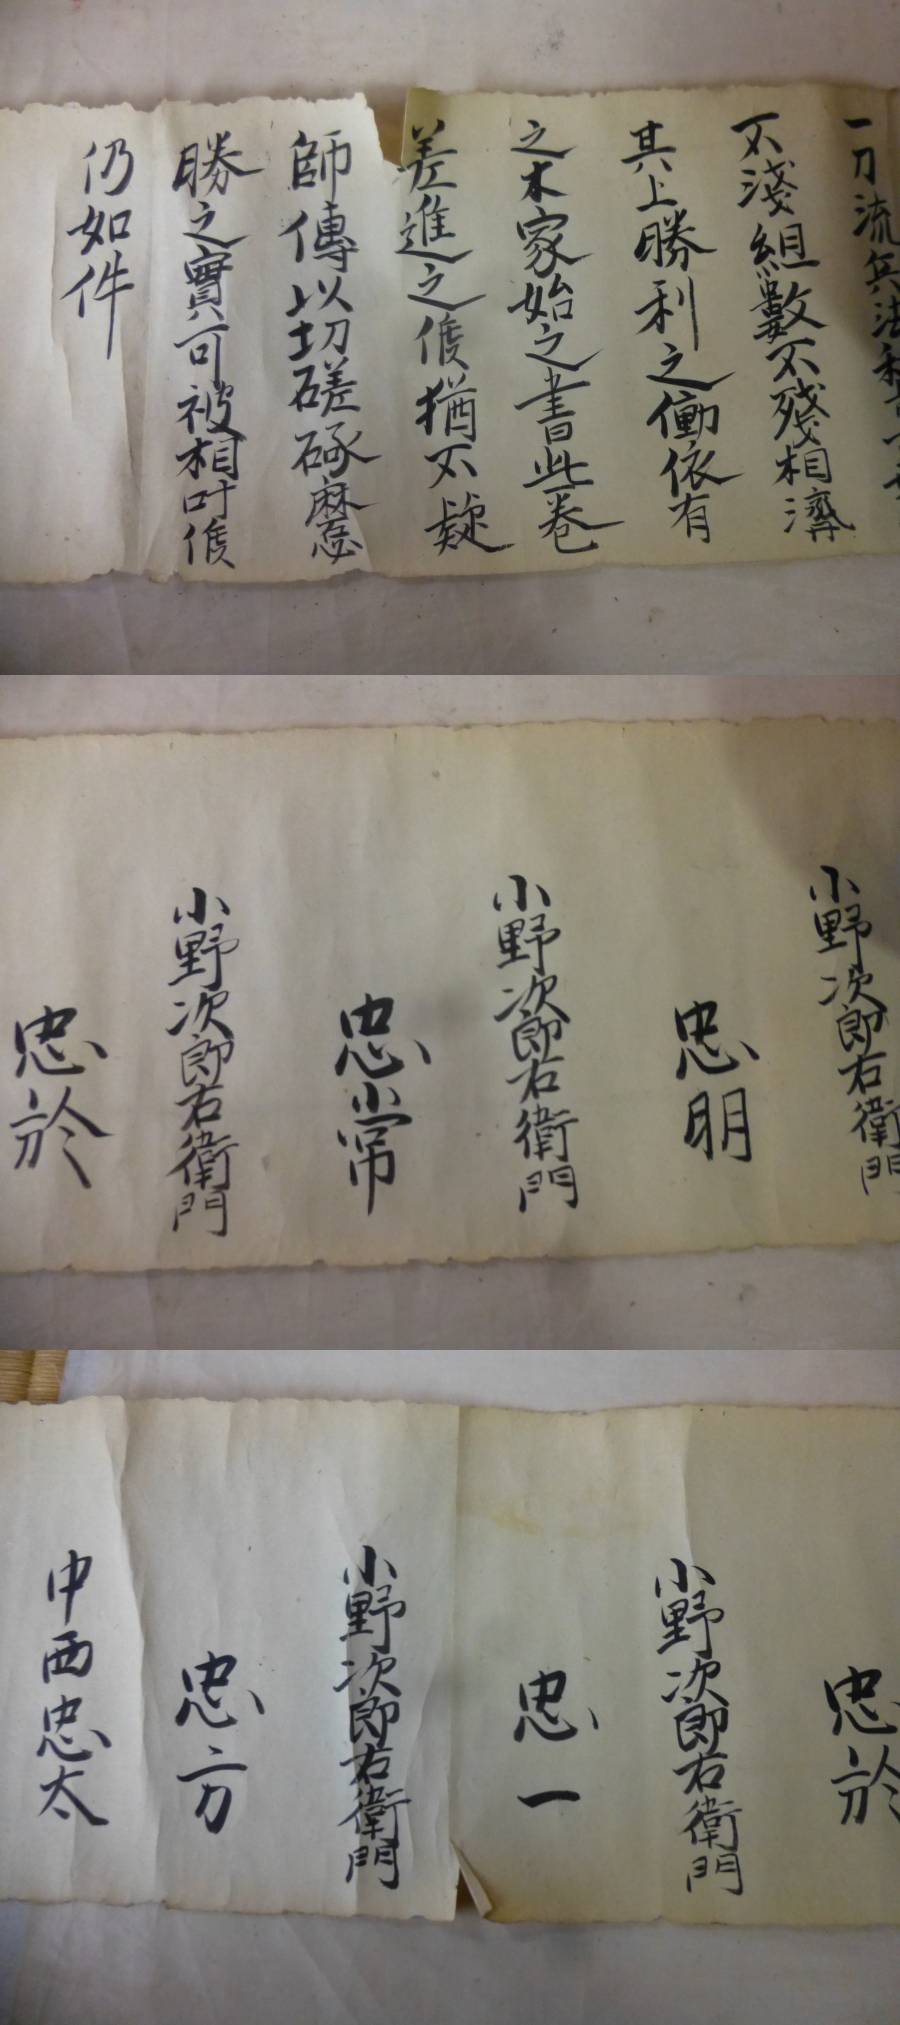 一刀流兵法
不淺組數不殘相濟
其上勝利之働依有
之木家始之書此卷
差進之候猶不疑
師傳以切磋琢磨
勝之實可被相叶候
仍如件
小野次郎右衛門
忠明
小野次郎右衛門
忠常
小野次郎右衛門
忠於
忠於
小野次郎右衛門
忠一
小野次郎右衛門
忠方
中西忠太